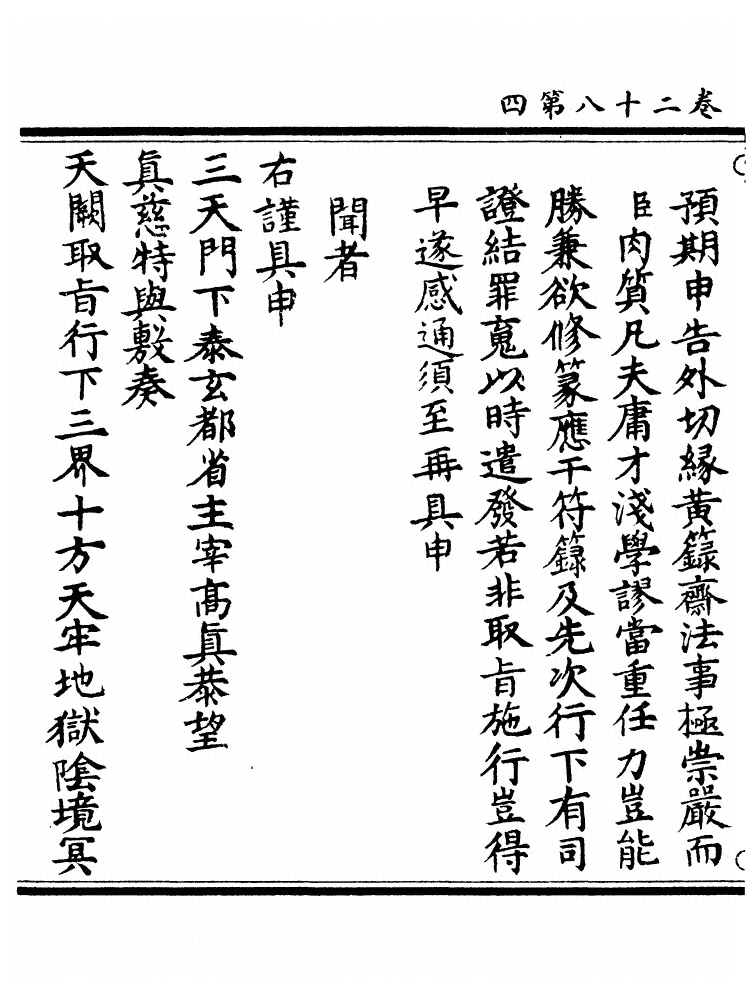 卷二十八第四
預期申告外切緣黃籙齋法事極崇嚴而
臣肉質凡夫庸才淺學謬當重任力豈能
勝兼欲修篆應干符籙及先次行下有司
證結罪䰟以時遣發若非取旨施行豈得
早遂感通須至再具申
聞者
右謹具申
三天門下泰玄都省主宰高眞恭望
眞慈特與敷奏
天闕取旨行下三界十方天牢地獄陰境冥